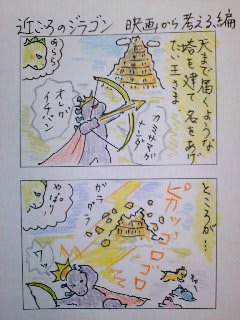 近ごろのジラゴン 映画から考える、編
天まで届くような
塔を建て名をあげ
たい王さま
あらら
カミサマが
ナンダ
オレが
イチバン
ところが…
ピカッゴロゴロ
ガラ
グラ
やっ
ぱり
ワッ